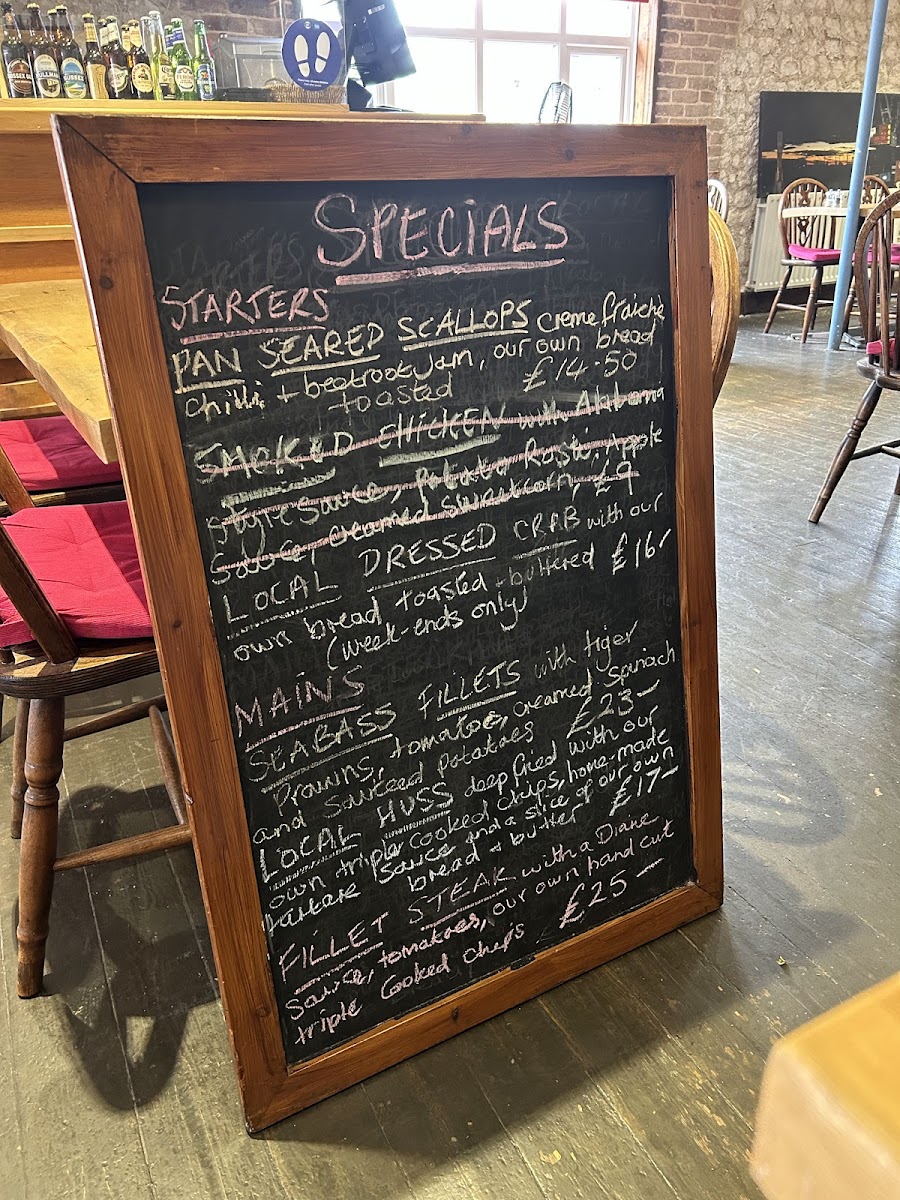 SPECIALS
STARTERS
PAN SEARED SCALLOPS creme fraiche
chilli + beetroot jam, our own bread
toasted £14.50
SMOKED CHICKEN with Alabama
style sauce, Potato Rosti, Apple
Sauce, creamed sweetcorn, £9
LOCAL DRESSED CRAB with our
own bread, toasted + buttered £16/
(week-ends only)
MAINS
SEABASS FILLETS with tiger
Prawns, tomatoe, creamed Spinach
and sauteed potatoes £23—
LOCAL HUSS deep fried with our
own triple cooked chips, home-made
tartare sauce and a slice of our own
bread + butter £17—
FILLET STEAK with a Diane
Sauce, tomatoes, our own hand cut
triple cooked chips £25—